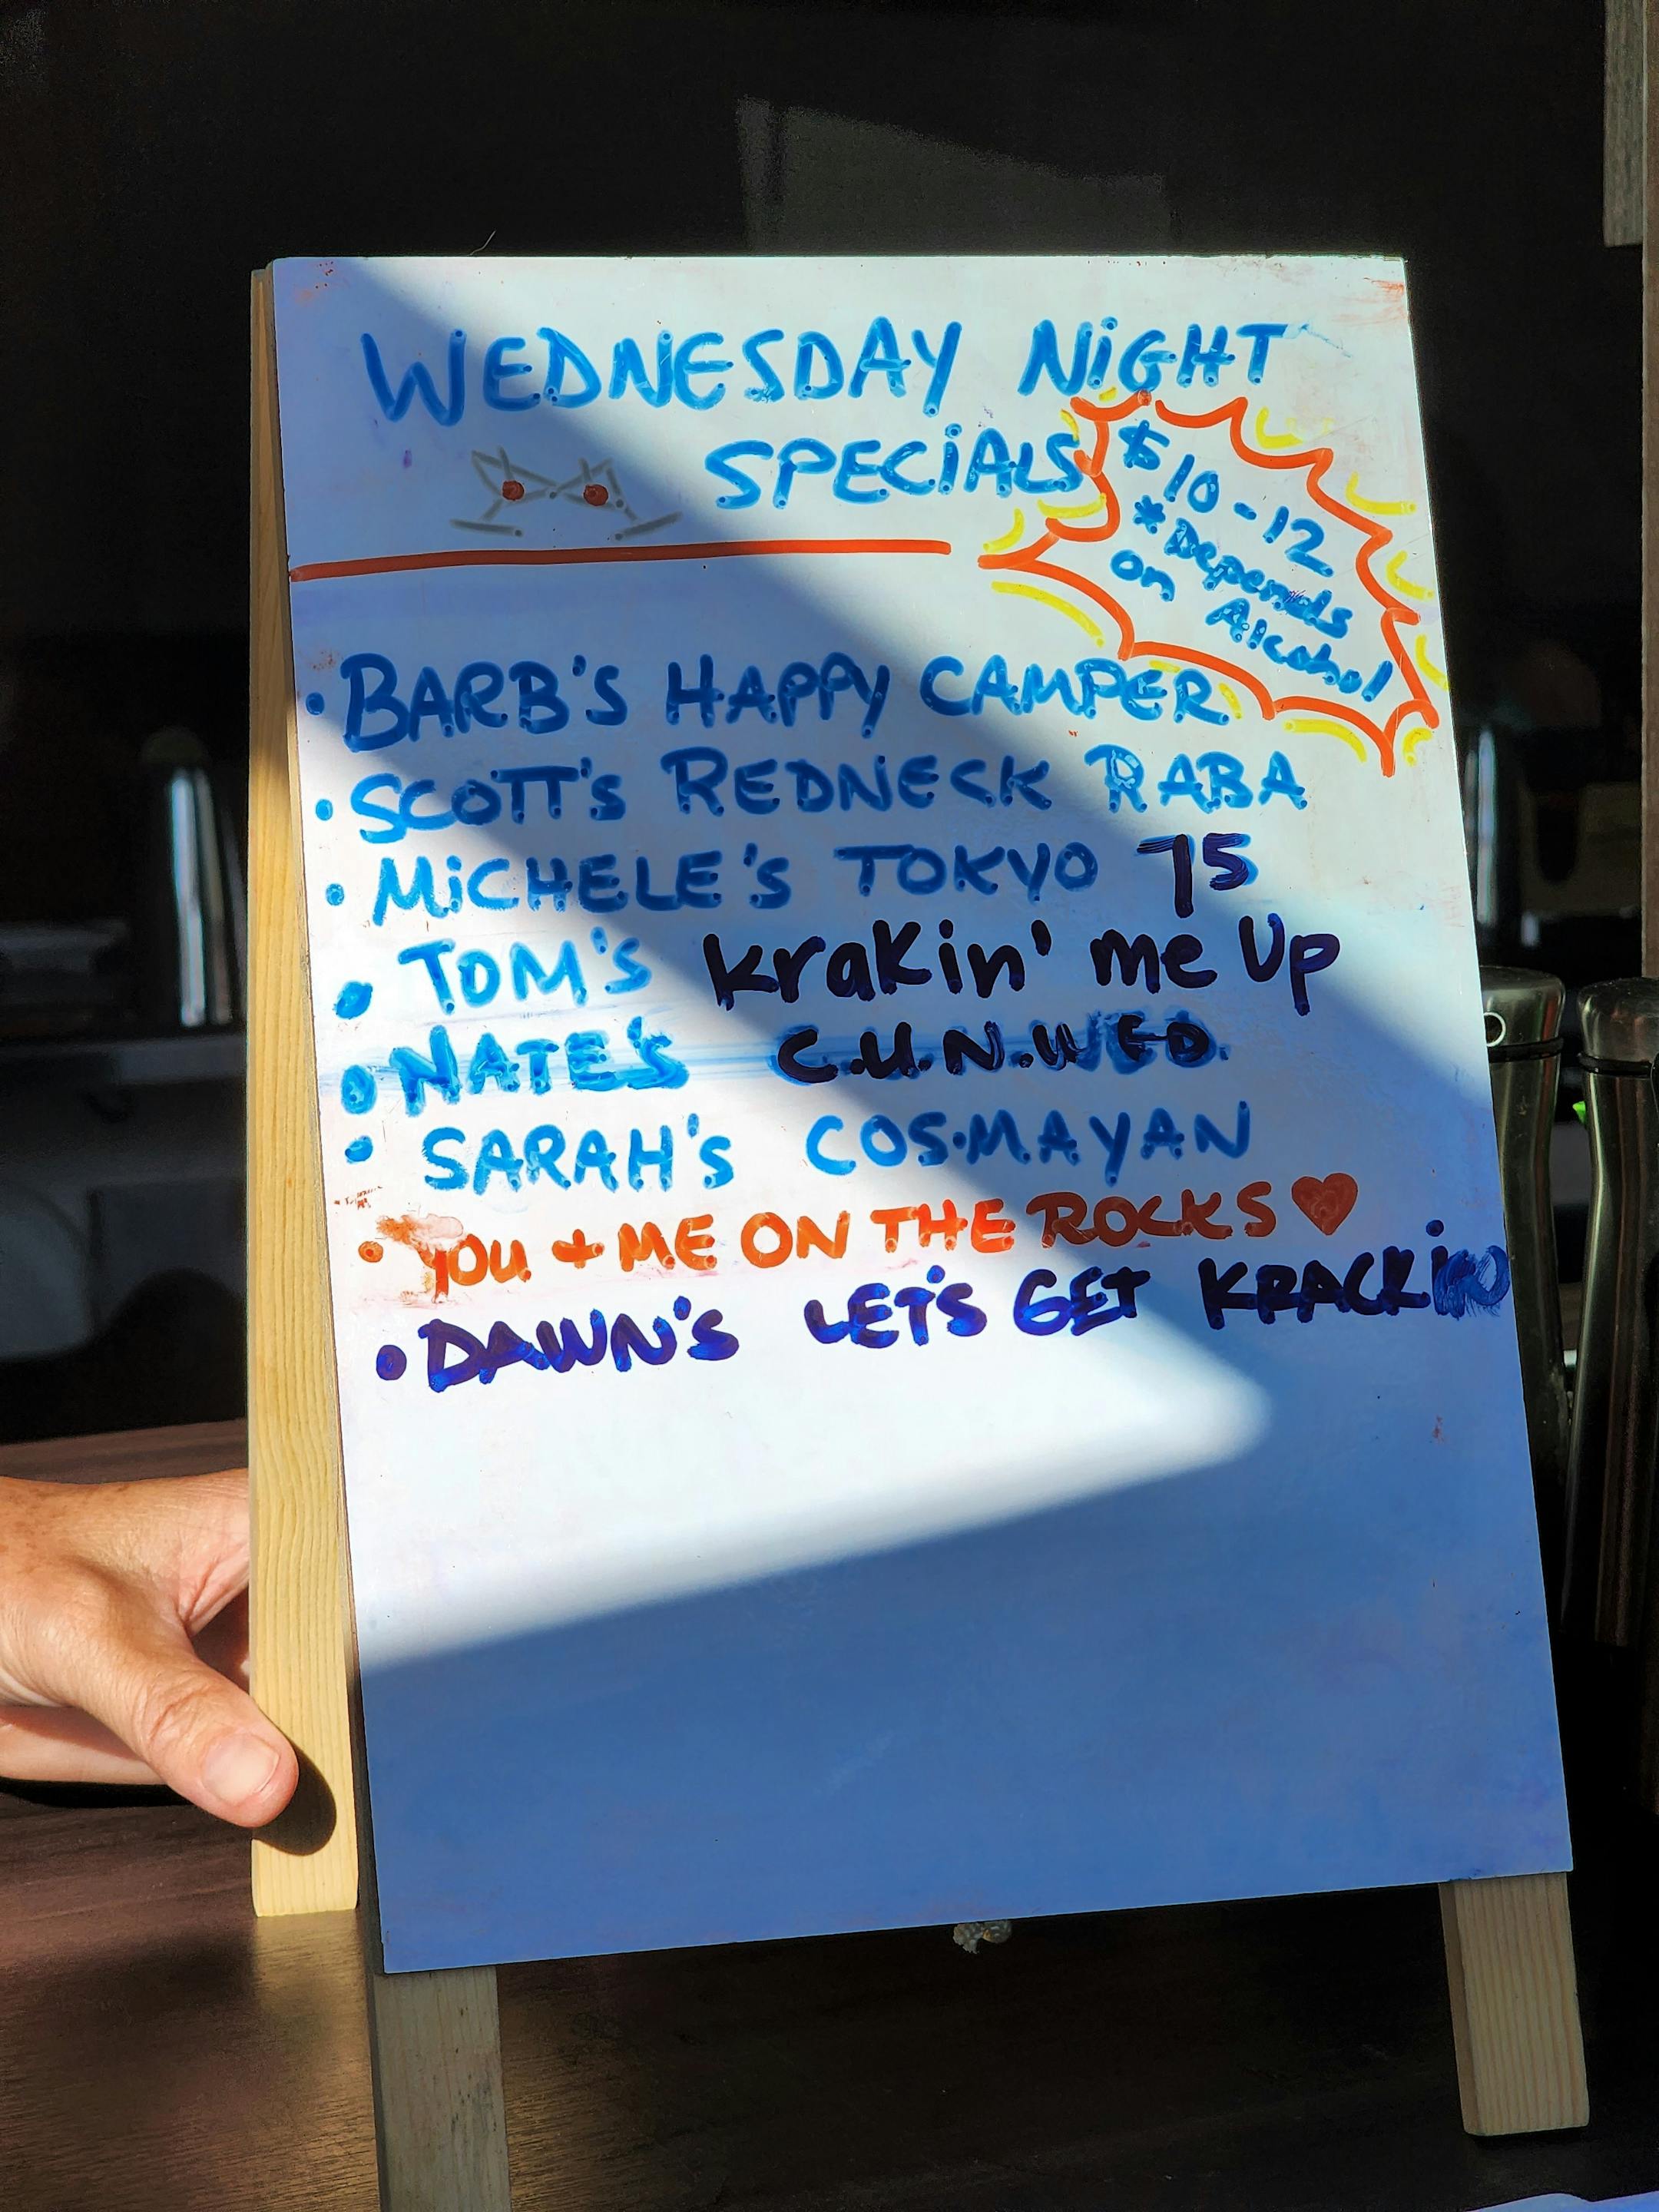 WEDNESDAY NiGHT
SPECiALS
$10-12
*Depends
on Alcohol
• BARB'S HAPPY CAMPER
• SCOTT'S REDNECK RABA
• MiCHELE'S TOKYO 75
• TOM'S KraKin' me Up
• NATE'S C.U.N.WED.
• SARAH'S COS·MAYAN
• YOU + ME ON THE ROCKS ♥
• DAWN'S LET'S GET KRACKiN